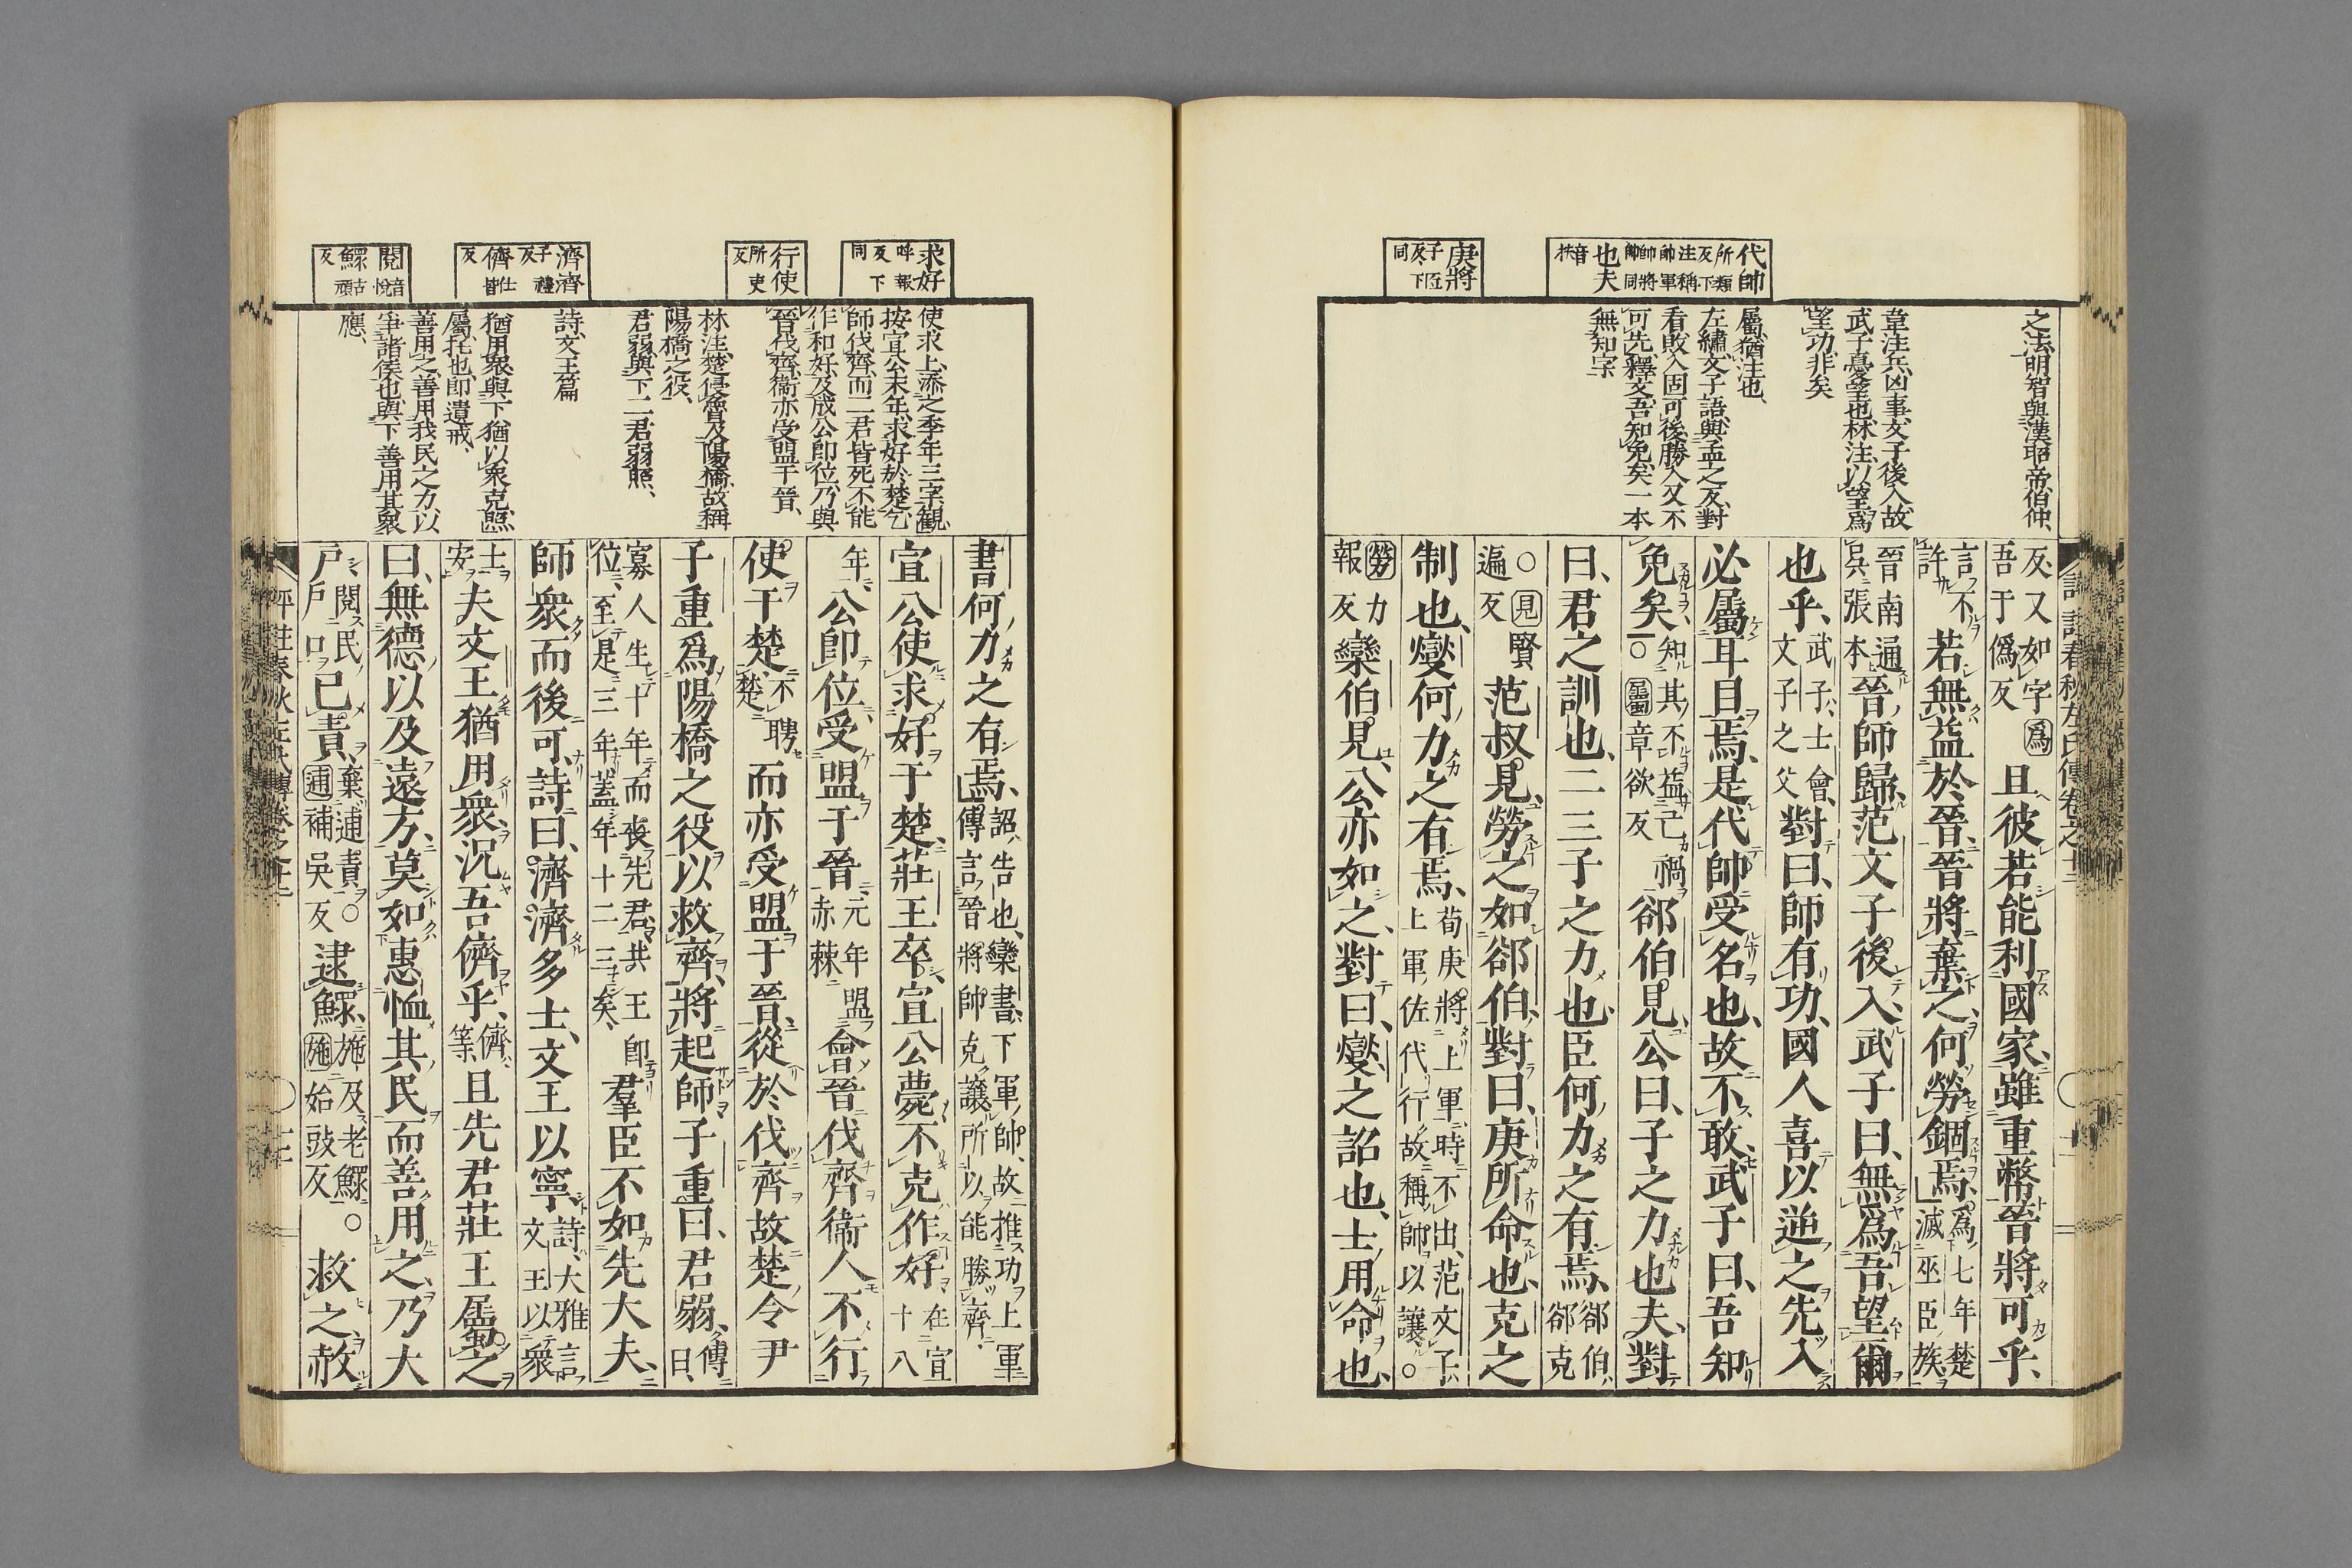 代帥
所類
反下
注稱
帥軍
帥將
帥同
也夫
音
扶
庚將
子匠
反下
同
之法明智與漢昭帝伯仲、
韋注兵凶事文子後入故
武子憂望也林注以望爲
望功非矣
屬猶注也、
左繡文子語與孟之反對
看敗入固可後勝入又不
可先釋文吾知免矣一本
無知字
反又如字爲
吾于僞反
且彼若能利國家、雖重幣晉將可乎、
言不
許
若無益於晉、晉將棄之、何勞錮焉、爲七年楚
滅巫臣族
晉南通
吳張本
晉師歸、范文子後入、武子曰、無爲吾望爾
也乎、武子士會
文子之父
對曰、師有功、國人喜以逆之、先入
必屬耳目焉、是代帥受名也、故不敢、武子曰、吾知
免矣、知其不益己禍
○屬章欲反
郤伯見、公曰、子之力也夫、對
曰、君之訓也、二三子之力也、臣何力之有焉、郤伯
郤克
○見賢
遍反
范叔見、勞之如郤伯、對曰、庚所命也、克之
制也、燮何力之有焉、荀庚將上軍、時不出、范文子
上軍佐代行故稱帥以讓○
勞力
報反
欒伯見、公亦如之、對曰、燮之詔也、士用命也、
求好
呼報
反下
同
行使
所吏
反
濟濟
子禮
反
儕仕皆
反
閱音悅
鰥古頑
反
使求上添之季年三字觀
按宣公末年求好於楚乞
師伐齊而二君皆死不能
作和好及成公即位乃與
晉伐齊衞亦受盟于晉、
林注楚侵魯及陽橋故稱
陽橋之役、
君弱與下二君弱照、
詩文王篇
猶用衆與下猶以衆克照
屬托也即遺戒、
善用之善用我民之力以
爭諸侯也與下善用其衆
應、
書何力之有焉、詔、告也、欒書下軍帥、故推功上軍
傳言晉將帥克讓所以能勝齊、
宣公使求好于楚、莊王卒、宣公薨不克作好、在宣
十八
年、
公即位、受盟于晉、元年盟
赤棘
會晉伐齊、衞人不行
使于楚、不聘
楚
而亦受盟于晉、從於伐齊、故楚令尹
子重爲陽橋之役以救齊、將起師子重曰、君弱、傳
曰、
寡人生十年而喪先君、共王即
位、至是三年蓋年十二三矣、
羣臣不如先大夫、
師衆而後可、詩曰、濟濟多士、文王以寧、詩、大雅言
文王以衆
士
安
夫文王猶用衆、況吾儕乎、儕、
等、
且先君莊王屬之
曰、無德以及遠方、莫如惠恤其民、而善用之、乃大
戶、閱民
戶口
已責、棄逋責○
逋補吳反
逮鰥、施及老鰥○
施始豉反
救之、赦